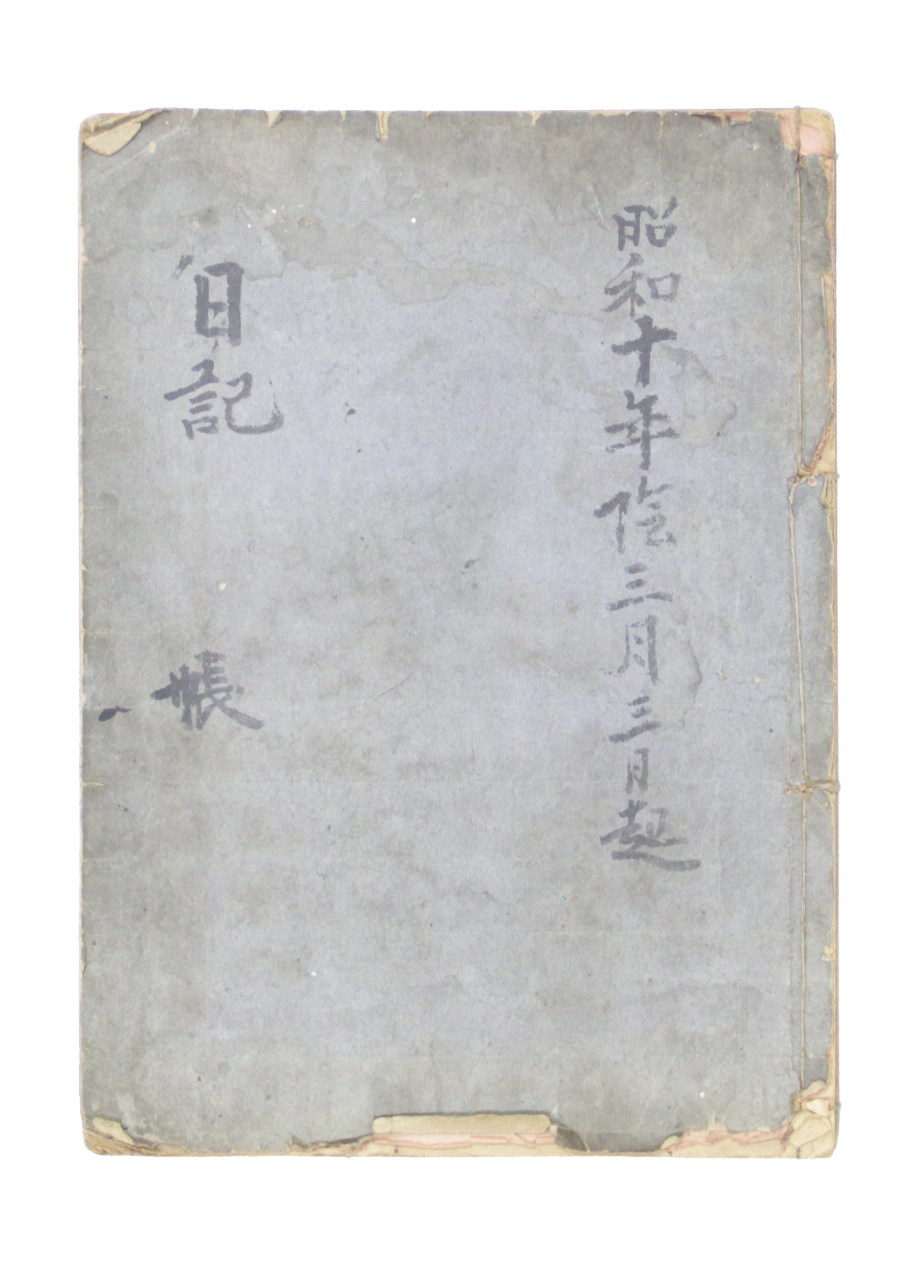 昭和十年陰三月三日起
日記帳